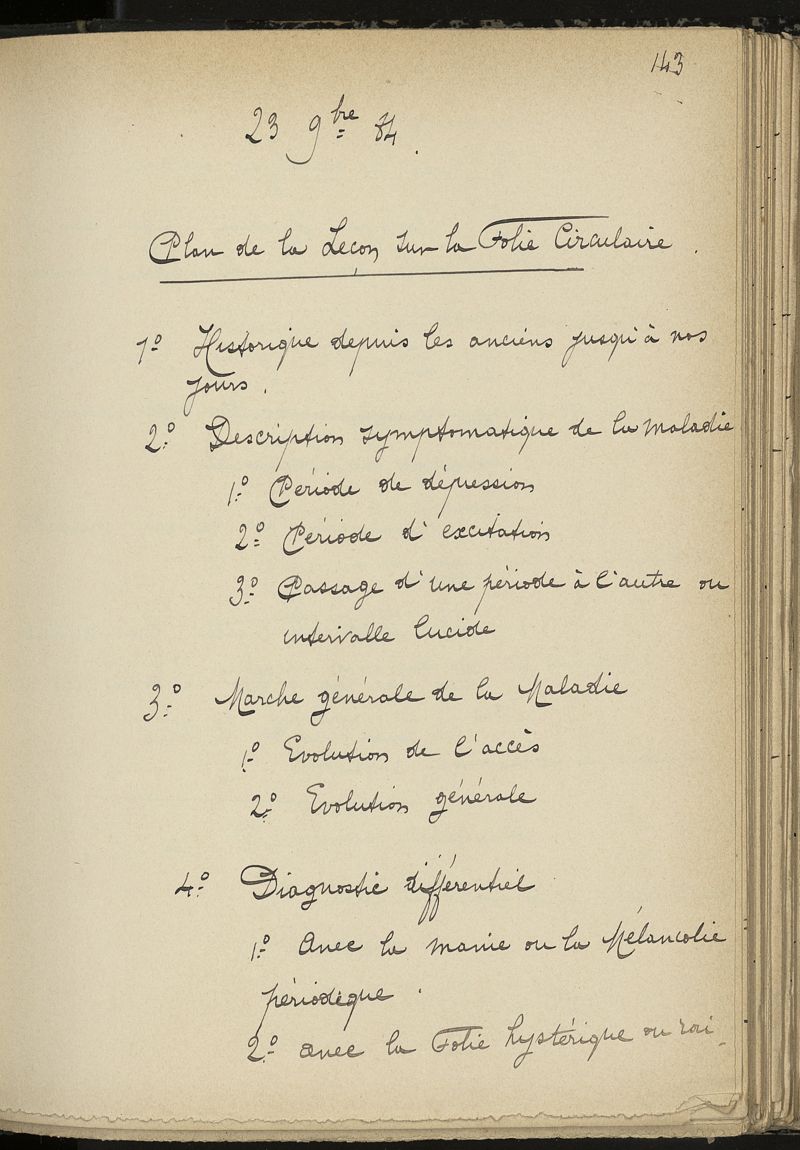 143
23 9bre 84.
Plan de la Leçon sur la Folie Circulaire.
1º Historique depuis les anciens jusqu'à nos
jours.
2º Description symptomatique de la maladie
1º Période de dépression
2º Période d'excitation
3º Passage d'une période à l'autre ou
intervalle lucide
3º Marche générale de la Maladie
1º Evolution de l'accès
2º Evolution générale
4º Diagnostic différentiel
1º Avec la manie ou la Mélancolie
périodique.
2º avec la Folie hystérique ou rai-